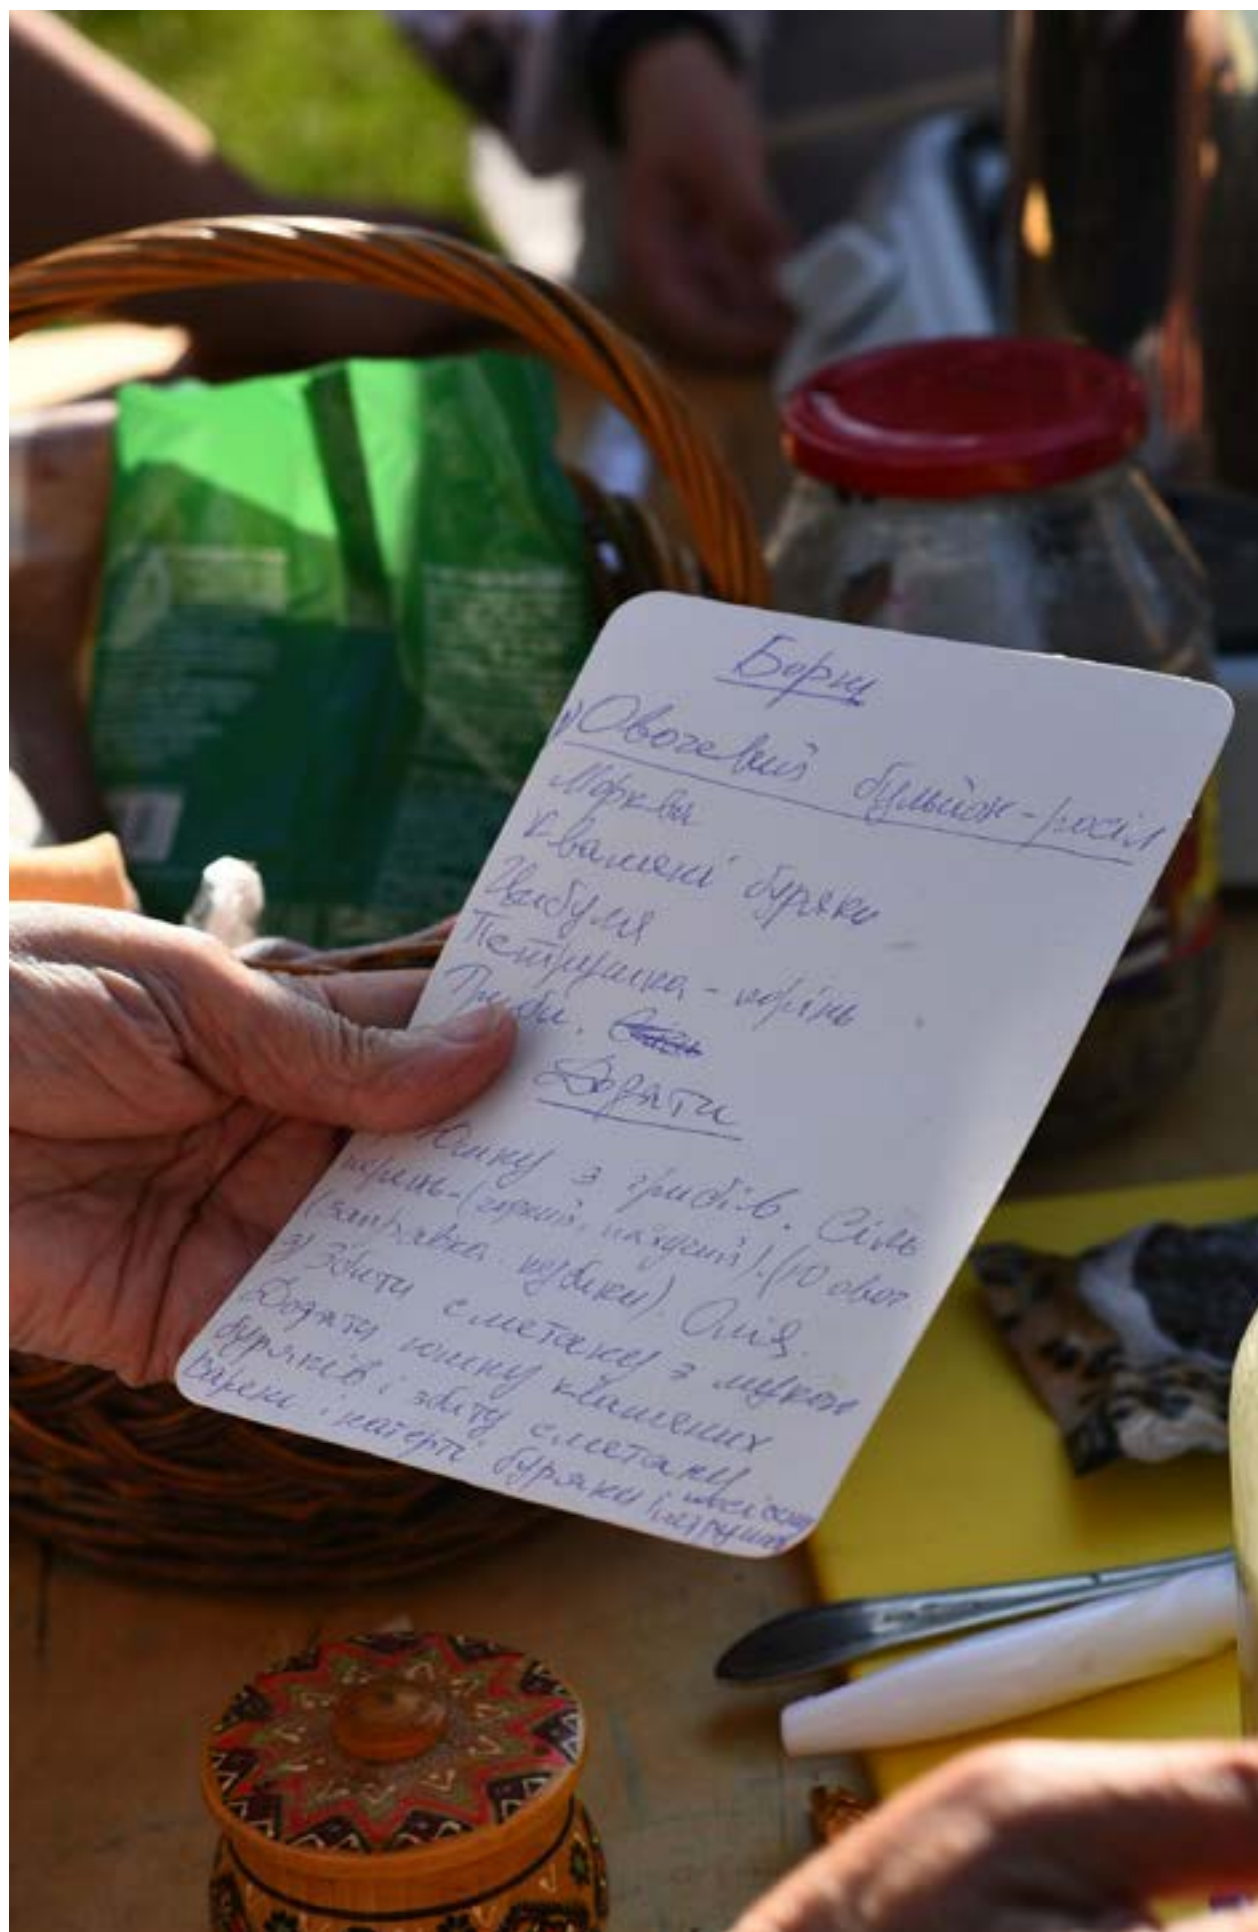 Борщ
1) Овочевий бульйон - росіл
Морква
Квашені буряки
Цибуля
Петрушка - корінь
Гриби.
Додати
Юшку з грибів. Сіль
перець - (гіркий, пахучий). (10 овоч
(заправка кубики). Олія.
3) Збити сметану з мукою
Додати юшку квашених
буряків і збиту сметану
Варені і натерті буряки і
петрушка